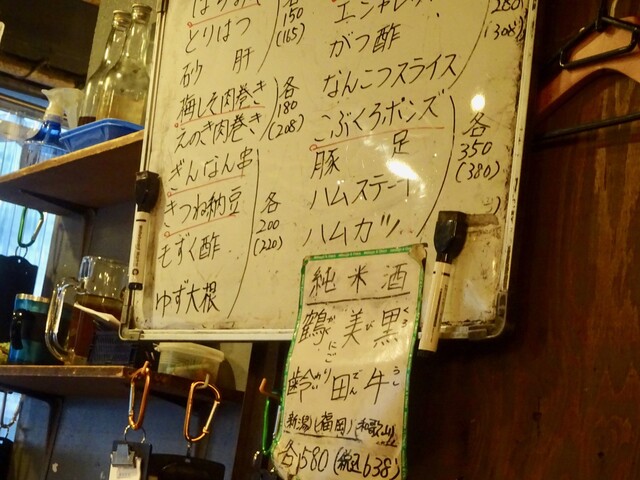 とりはつ
砂肝
各
150
(165)
梅しそ肉巻き
えのき肉巻き
各
180
(208)
ぎんなん串
きつね納豆
もずく酢
ゆず大根
各
200
(220)
280
(308)
がつ酢
なんこつスライス
こぶくろポンズ
豚足
ハムステーキ
ハムカツ
各
350
(380)
純米酒
鶴齢 かくれい
美田 びでん
黒牛 くろうし
新潟 福岡 和歌山
各580(税込638)